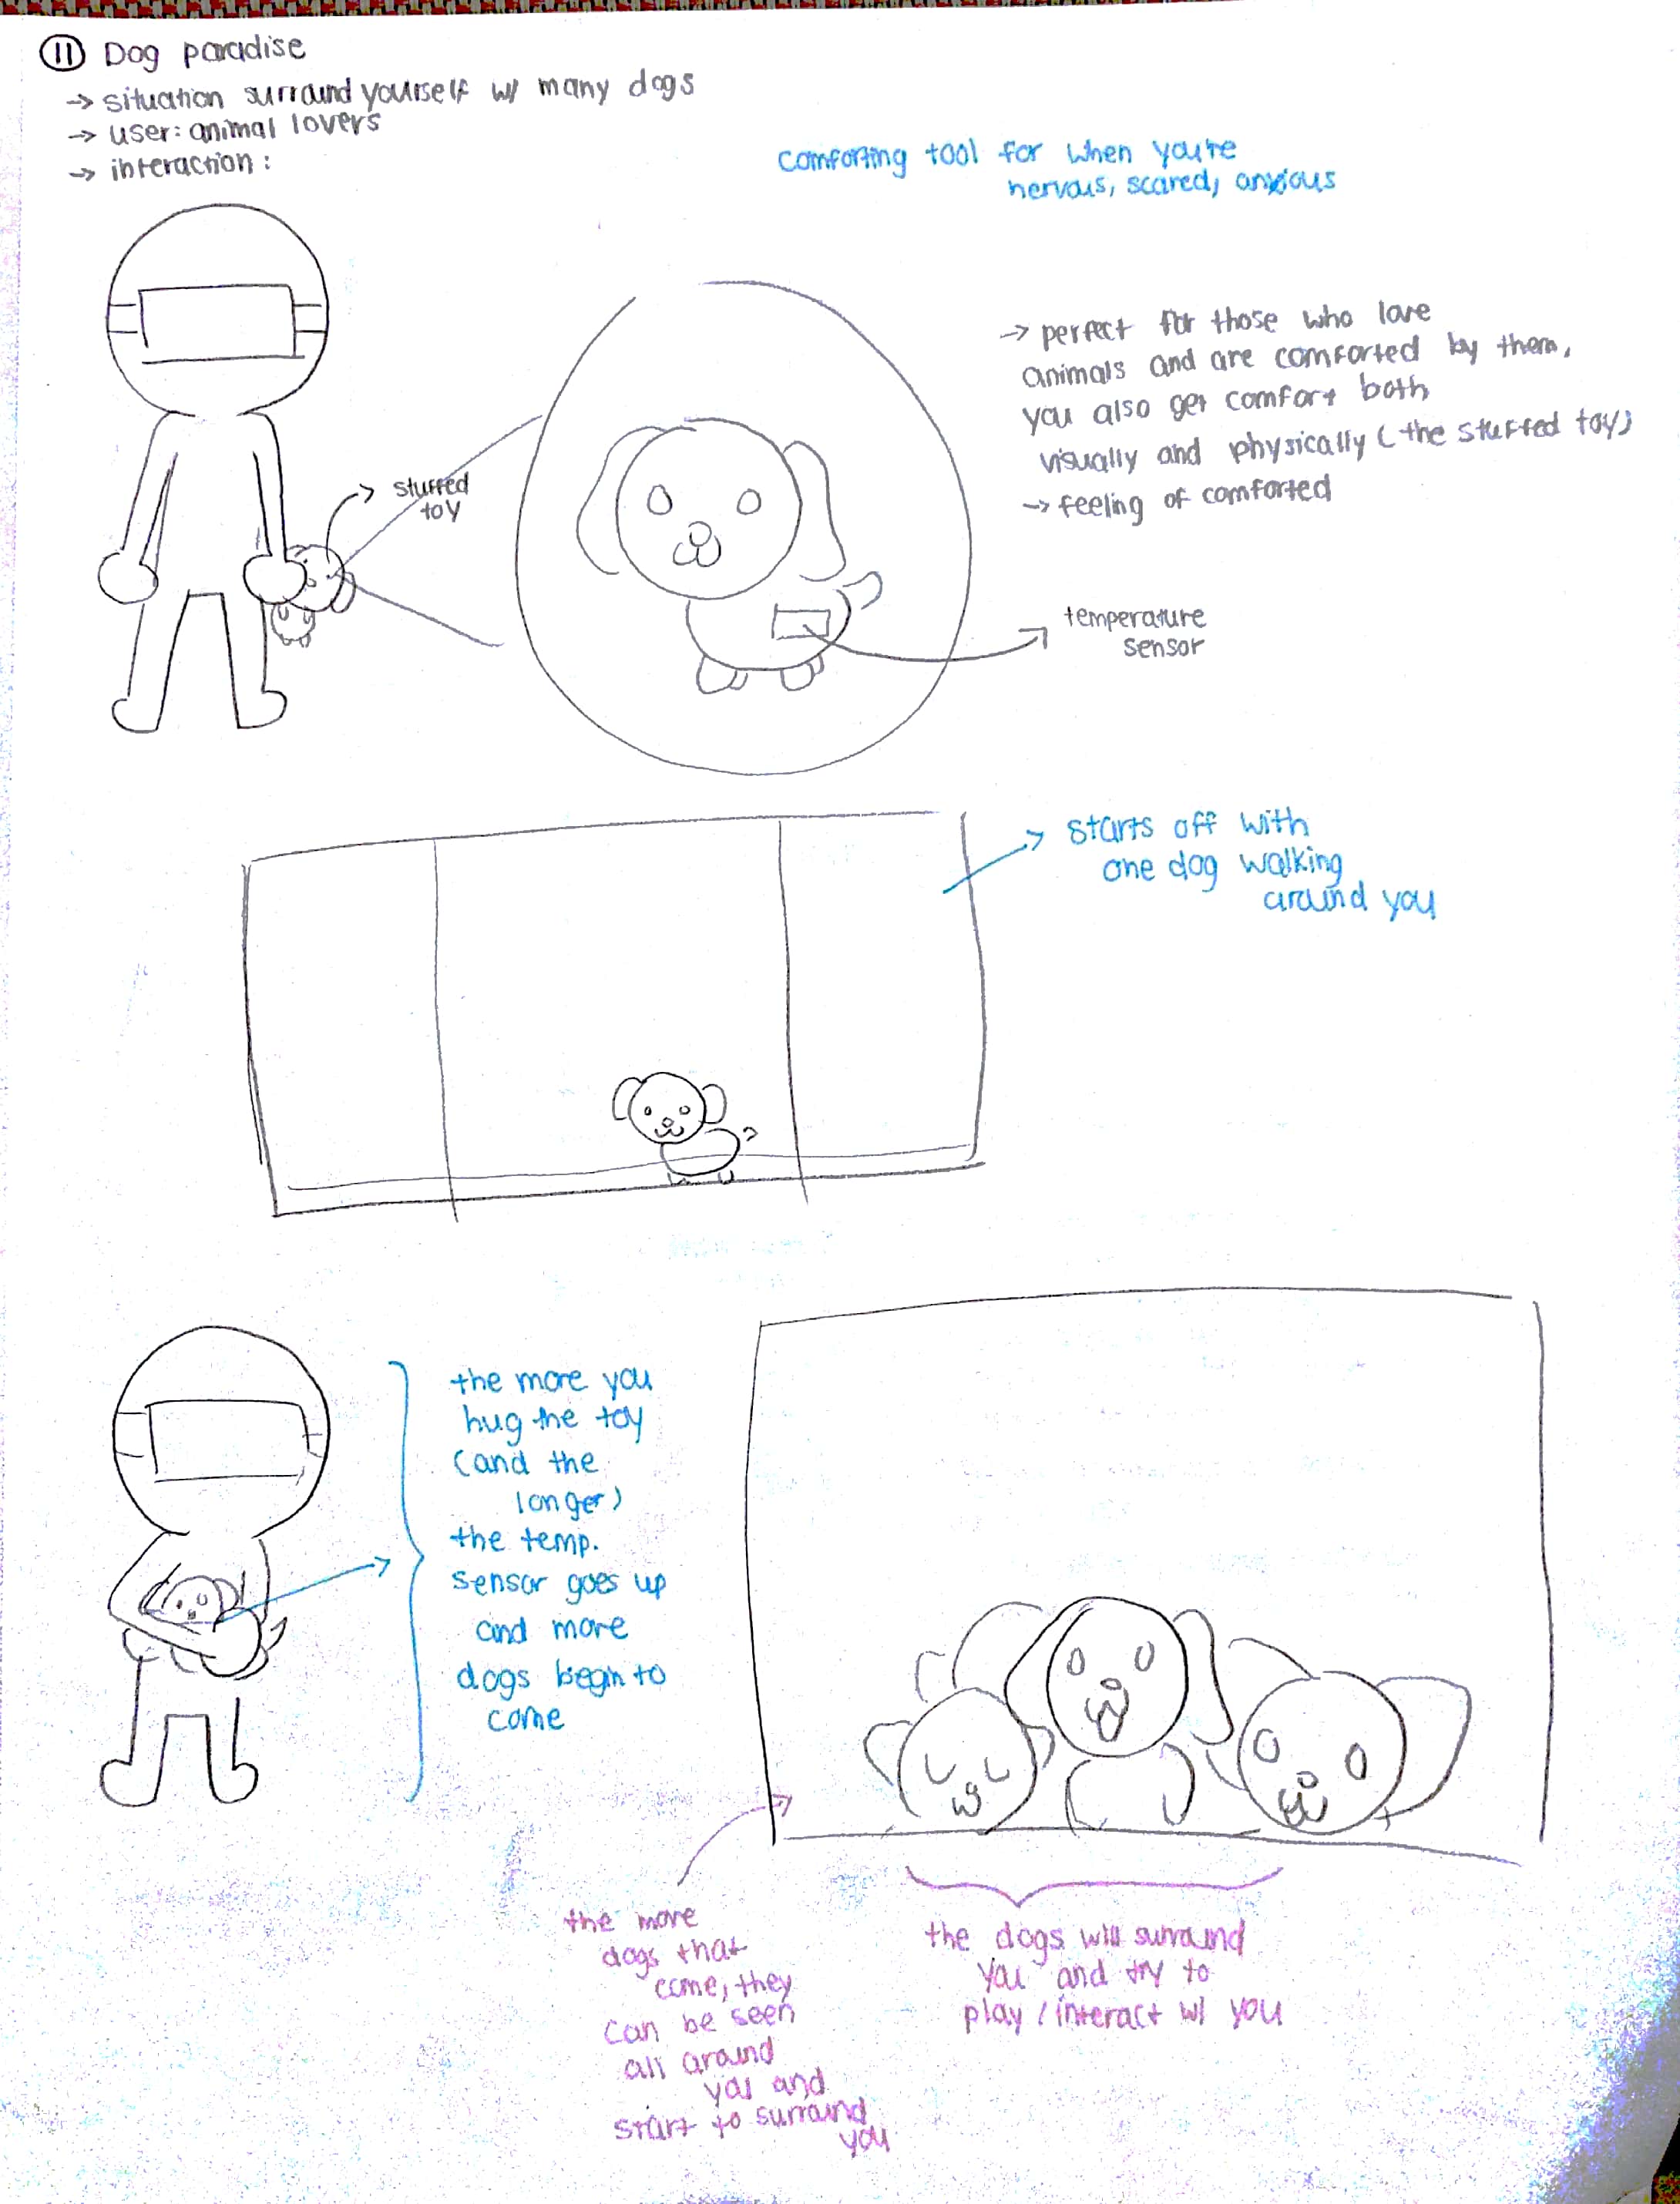 ⑪ Dog paradise
→ situation surround yourself w/ many dogs
→ user: animal lovers
→ interaction:
comforting tool for when you're
nervous, scared, anxious
→ perfect for those who love
animals and are comforted by them,
you also get comfort both
visually and physically (the stuffed toy)
→ feeling of comforted
stuffed
toy
temperature
sensor
starts off with
one dog walking
around you
the more you
hug the toy
(and the
longer)
the temp.
sensor goes up
and more
dogs begin to
come
the more
dogs that
come, they
can be seen
all around
you and
start to surround
you
the dogs will surround
you and try to
play / interact w/ you